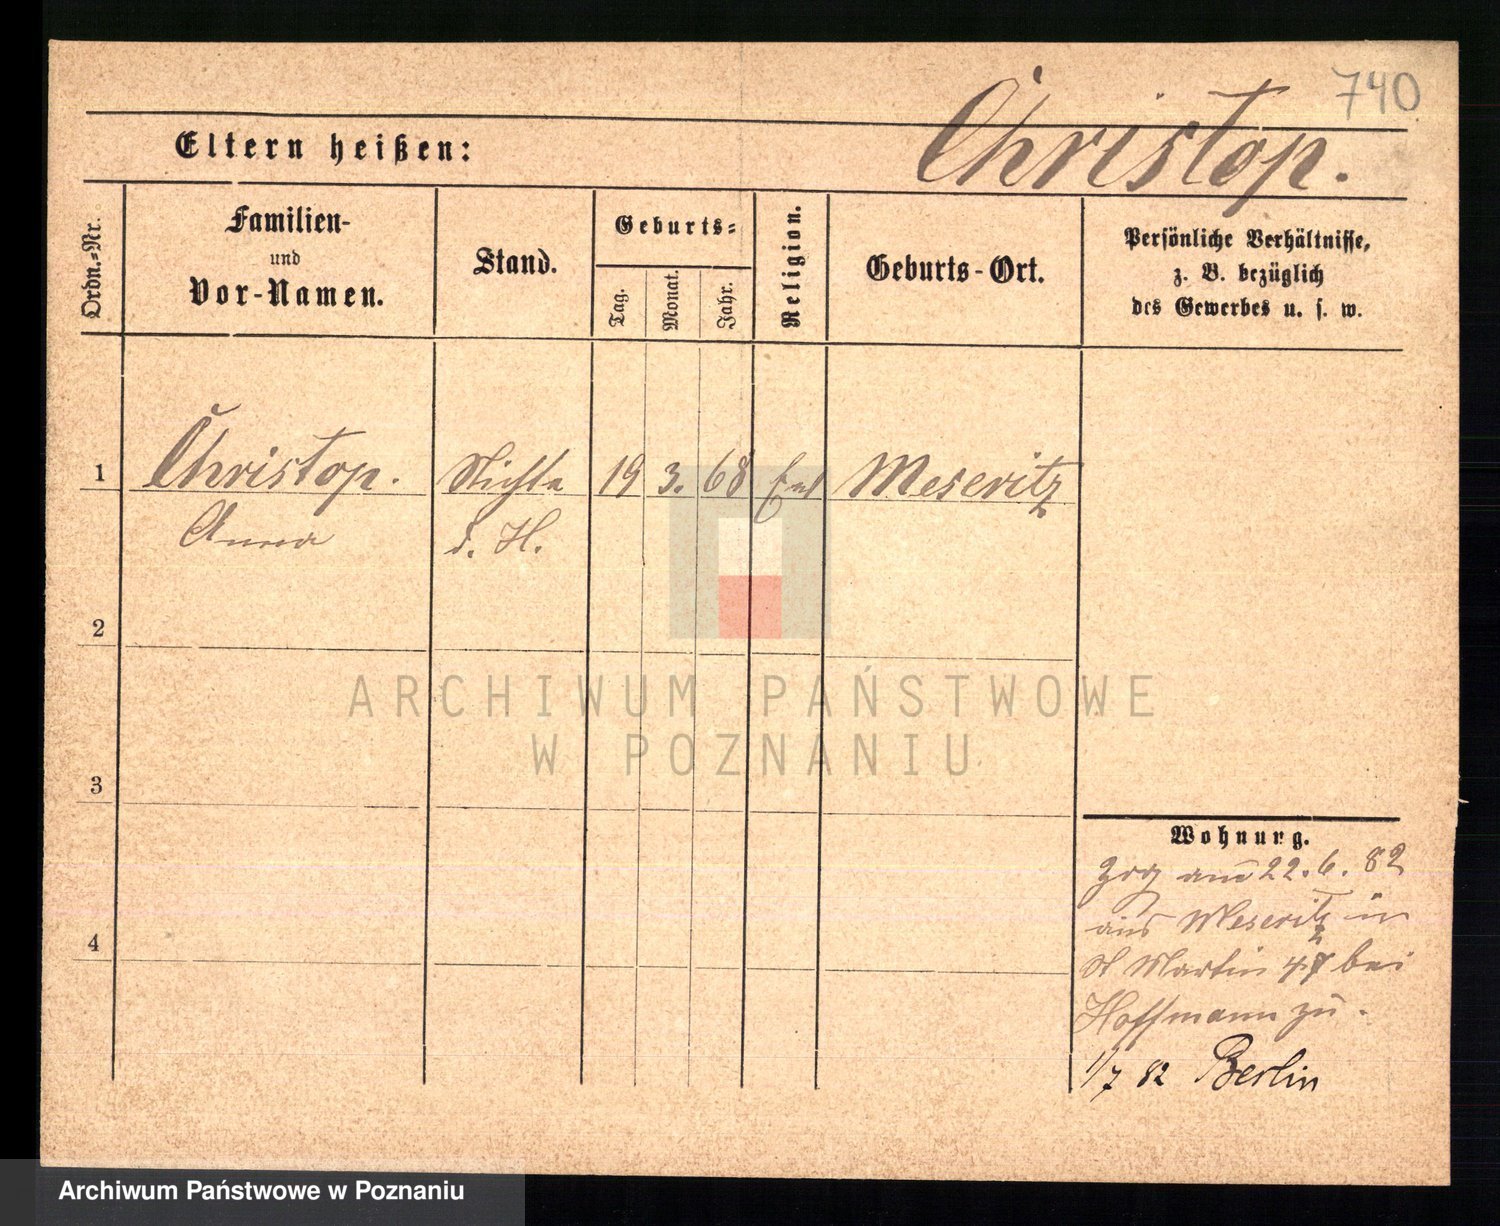 740
Christop.
Eltern heißen:
Ordn.-Nr.
Familien-
und
Vor-Namen.
Stand.
Geburts-
Tag.
Monat.
Jahr.
Religion.
Geburts-Ort.
Persönliche Verhältnisse,
z. B. bezüglich
des Gewerbes u. s. w.
1 Christop. Nichte 19 3. 68 Meseritz
Anna d. H.
2
3
4
ARCHIWUM PAŃSTWOWE
W POZNANIU
Wohnung.
Zog am 22.6.82
aus Meseritz in
St Martin 47 bei
Hoffmann zu.
1/7 82 Berlin
Archiwum Państwowe w Poznaniu